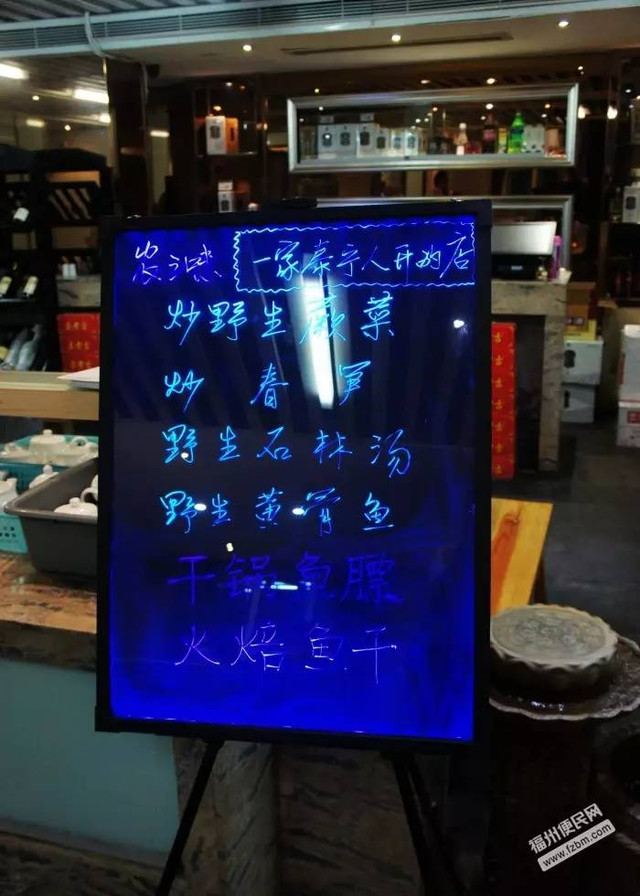 炭之味 一家泰宁人开的店
炒野生蕨菜
炒春笋
野生石林汤
野生黄骨鱼
干锅鱼膘
火焙鱼干
福州便民网
www.fzbm.com